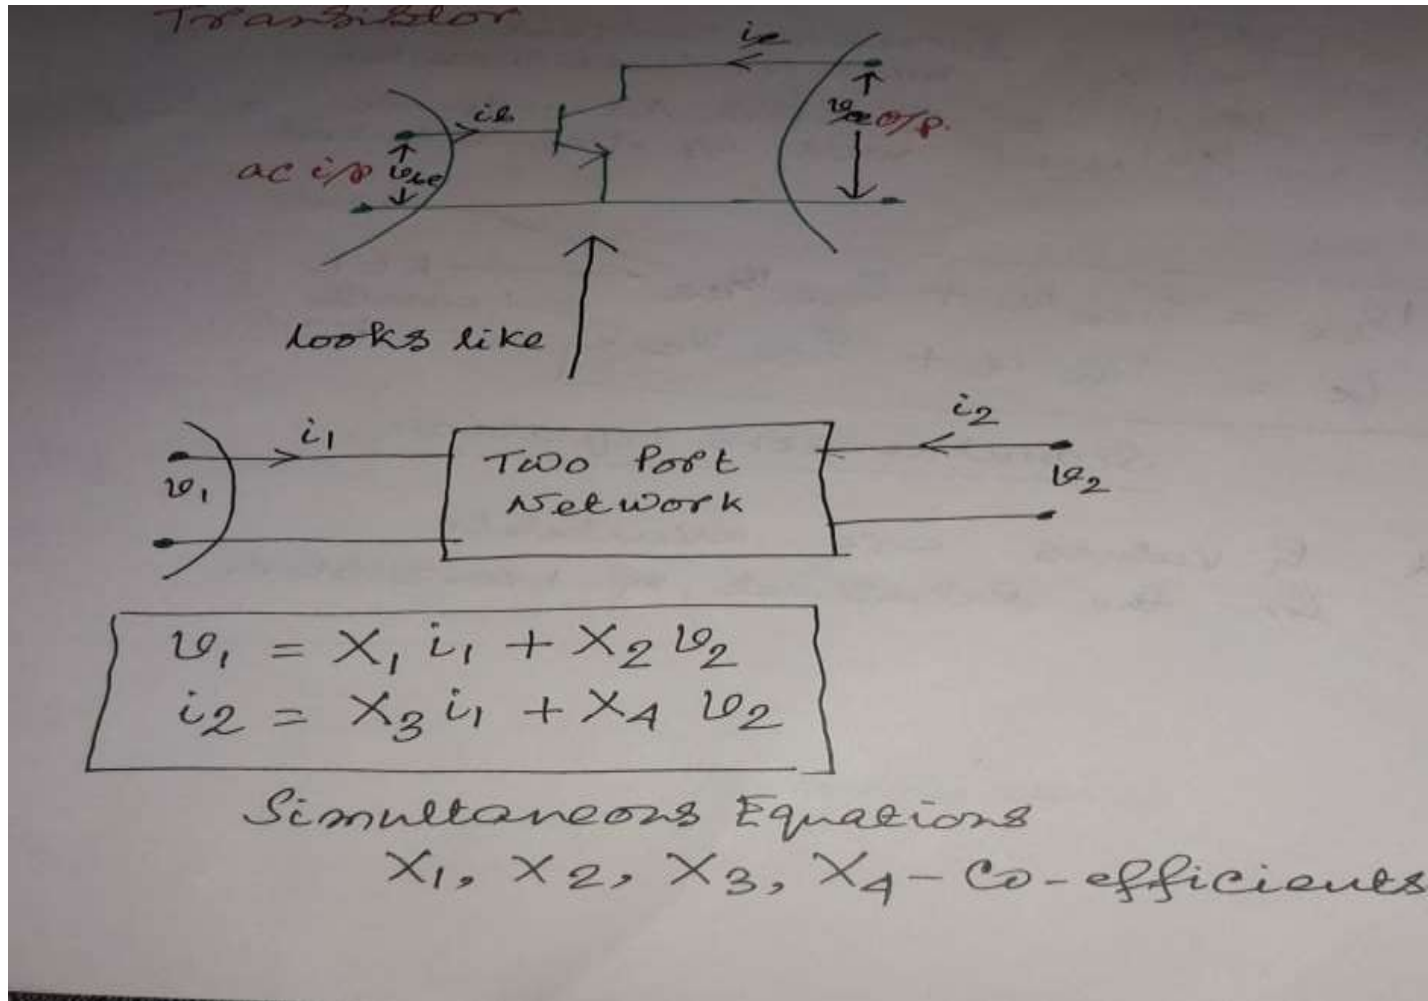 Transistor
ic
ib
ac i/p vbe
vce o/p.
looks like
i1
i2
v1
Two Port
Network
v2
v1 = X1 i1 + X2 v2
i2 = X3 i1 + X4 v2
Simultaneous Equations
X1, X2, X3, X4 - Co-efficients